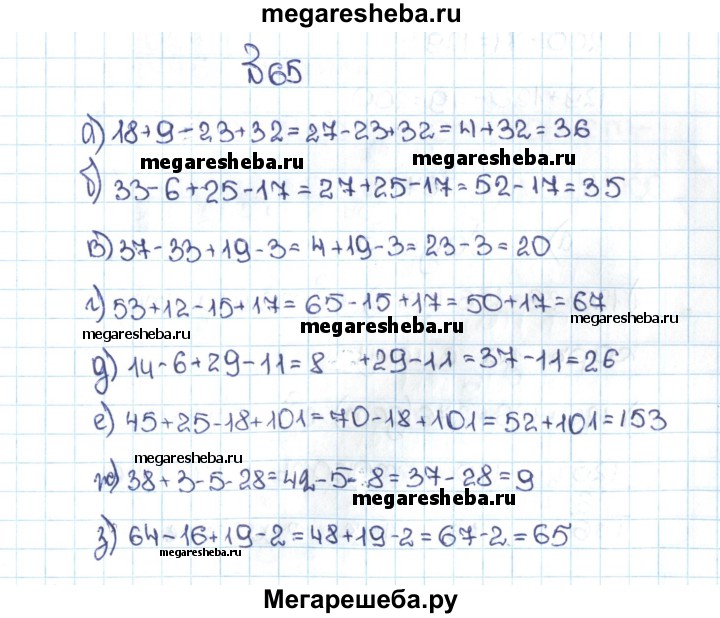 megaresheba.ru
№65
а) 18+9-23+32=27-23+32=4+32=36
megaresheba.ru megaresheba.ru
б) 33-6+25-17=27+25-17=52-17=35
в) 37-33+19-3=4+19-3=23-3=20
г) 53+12-15+17=65-15+17=50+17=67
megaresheba.ru megaresheba.ru megaresheba.ru
д) 14-6+29-11=8 +29-11=37-11=26
е) 45+25-18+101=70-18+101=52+101=153
megaresheba.ru
ж) 38+3-5-28=42-5- 8=37-28=9
megaresheba.ru
з) 64-16+19-2=48+19-2=67-2=65
megaresheba.ru
Мегарешеба.ру